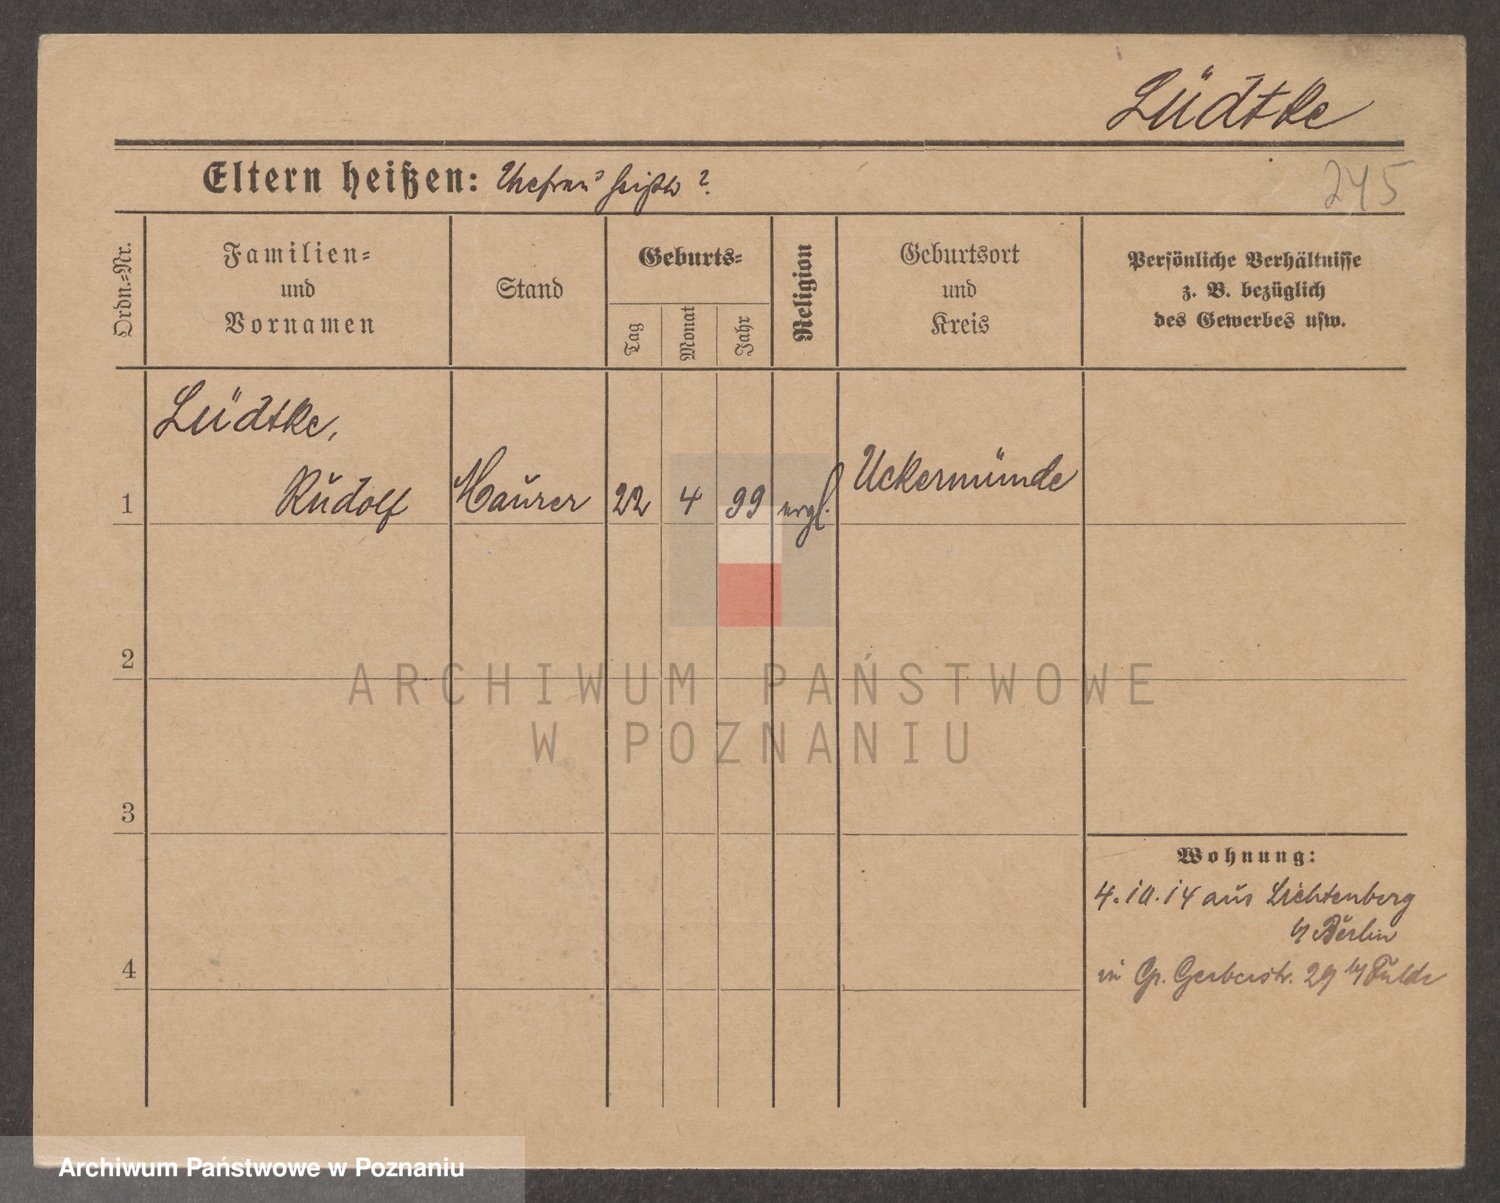 Lüdtke
Eltern heißen: Ehefrau heißt?
245
Ordn.-Nr.
Familien-
und
Vornamen
Stand
Geburts-
Tag
Monat
Jahr
Religion
Geburtsort
und
Kreis
Persönliche Verhältnisse
z. B. bezüglich
des Gewerbes usw.
Lüdtke,
1 Rudolf Maurer 22 4 99 evgl. Uckermünde
2
ARCHIWUM PAŃSTWOWE
W POZNANIU
3
Wohnung:
4.10.14 aus Lichtenberg
b/ Berlin
4
in Gr. Gerberstr. 29 b/ Fulde
Archiwum Państwowe w Poznaniu